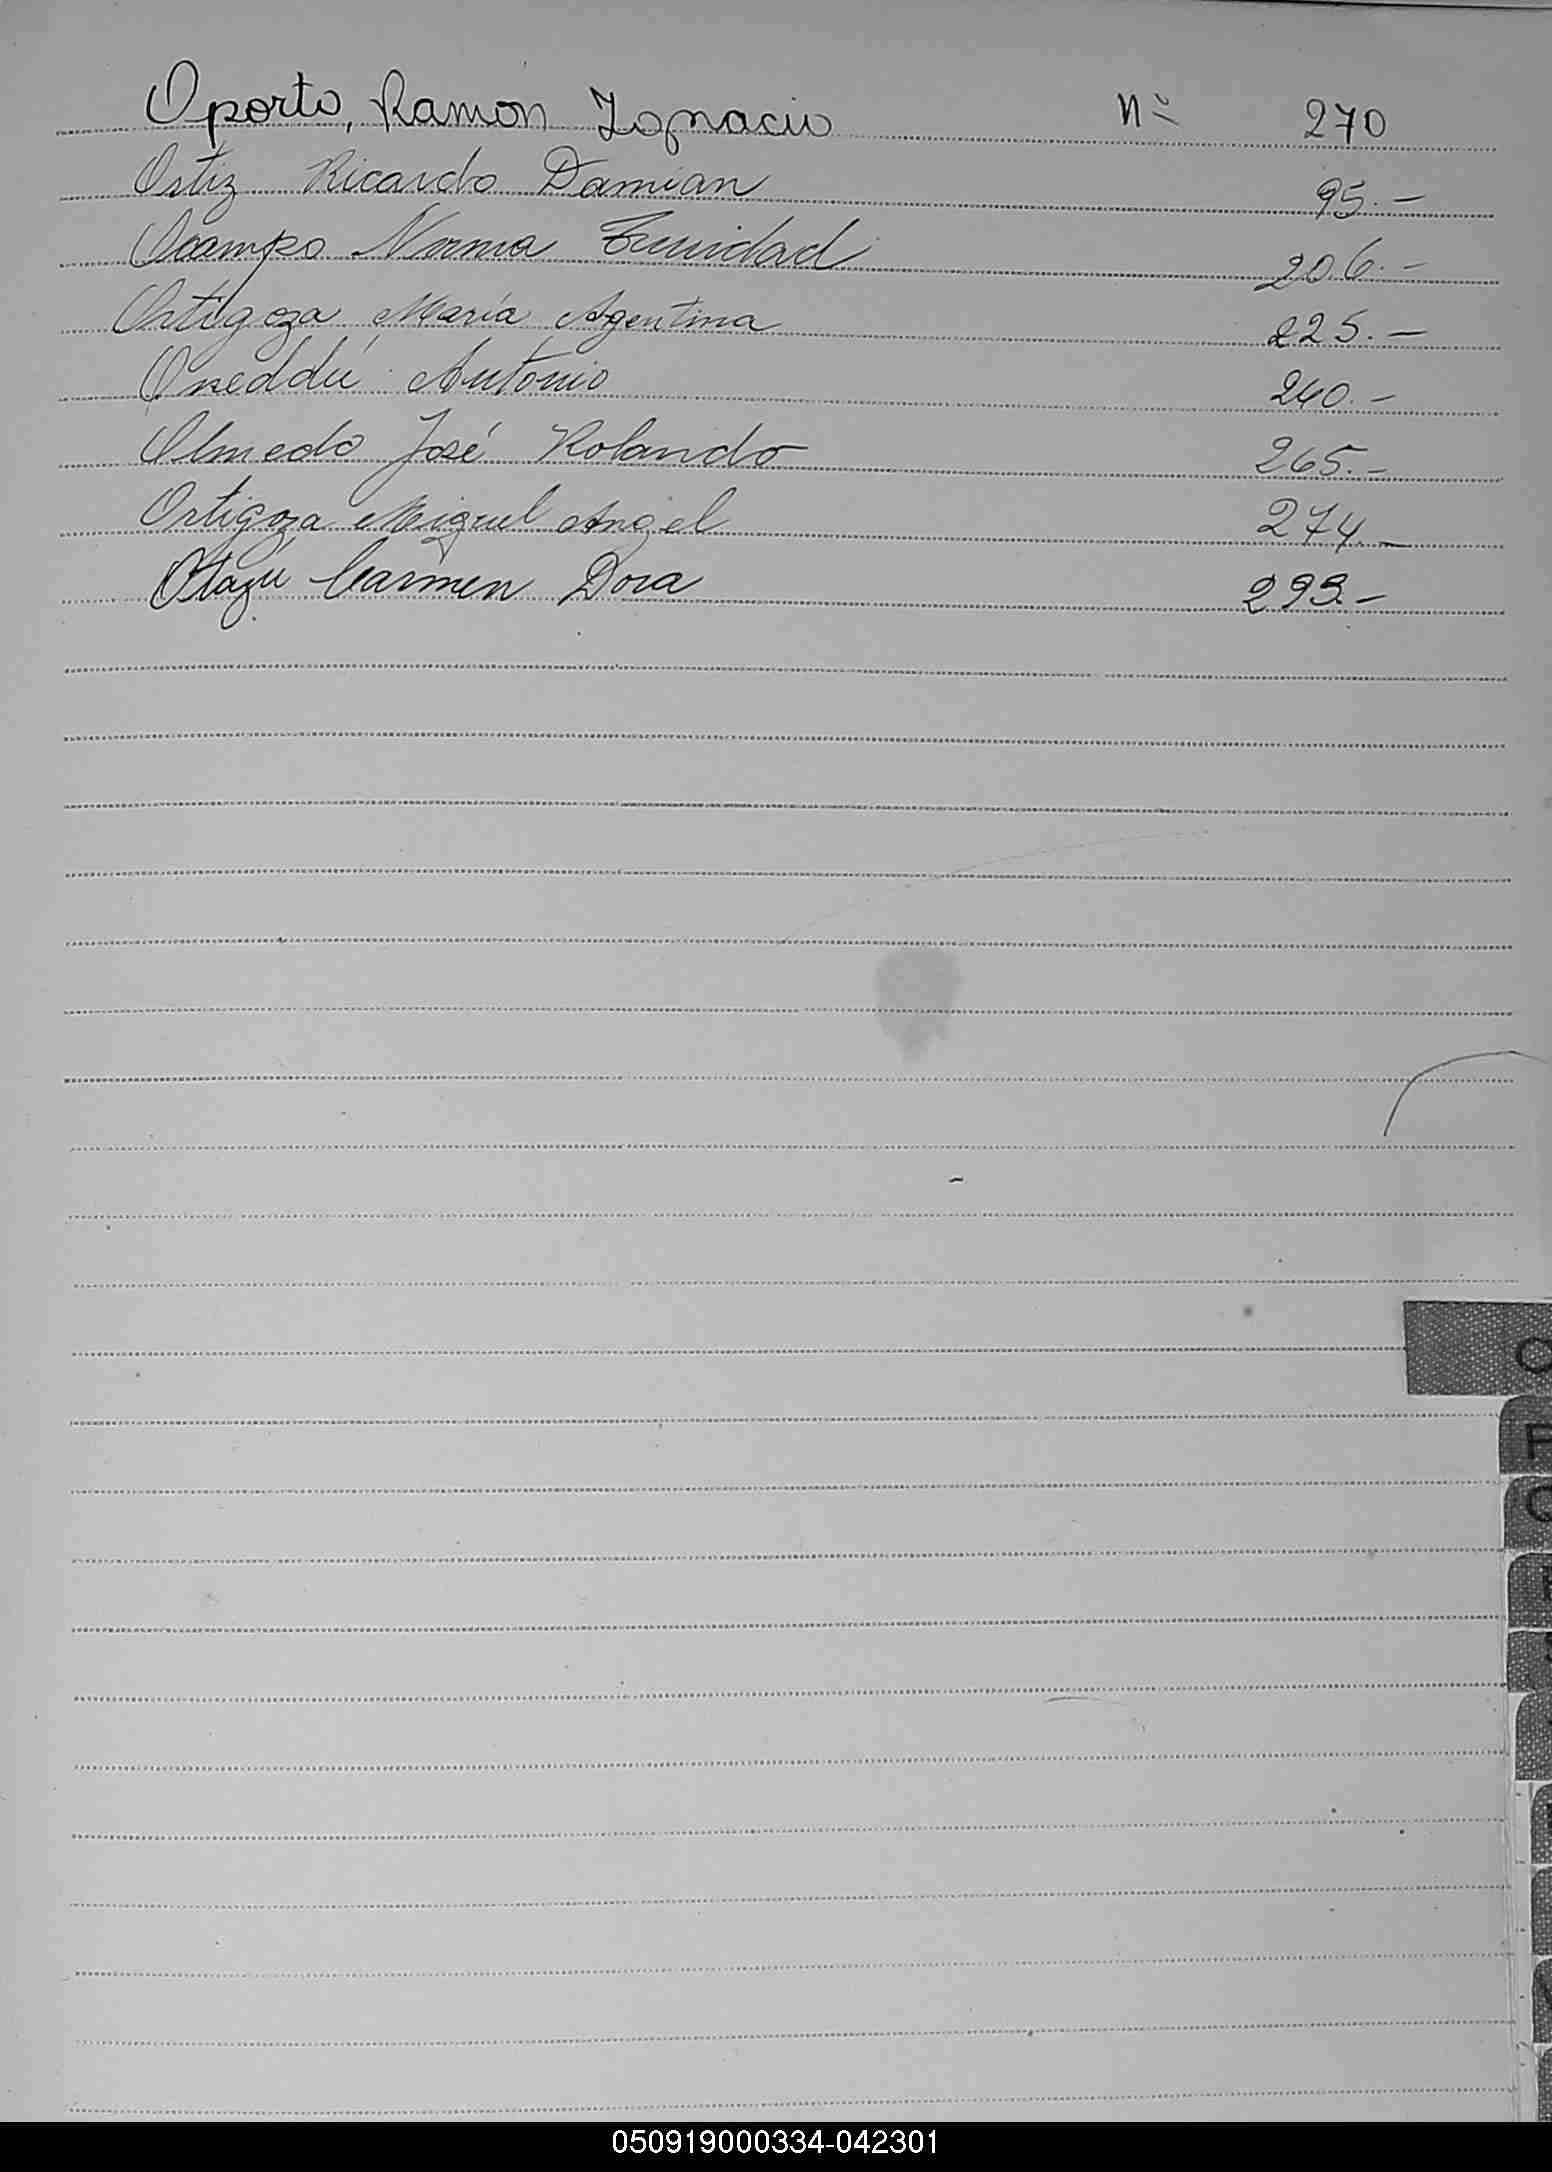 Oporto, Ramón Ignacio Nº 270
Ortiz Ricardo Damian 95.-
Ocampo Norma Trinidad 206.-
Ortigoza María Argentina 225.-
Oneddú Antonio 240.-
Olmedo José Rolando 265.-
Ortigoza Miguel Angel 274.-
Otazú Carmen Dora 293.-
O
P
050919000334-042301